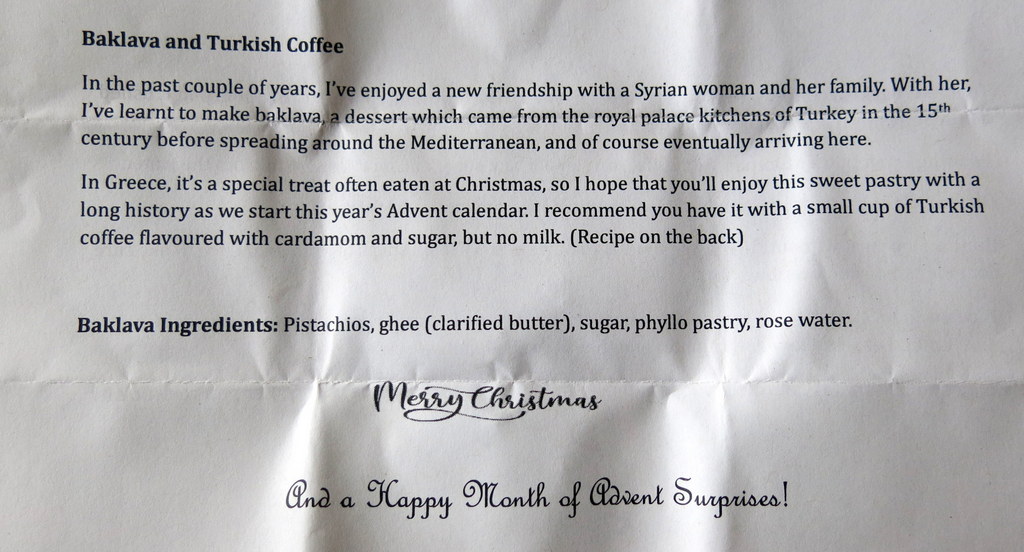 Baklava and Turkish Coffee
In the past couple of years, I've enjoyed a new friendship with a Syrian woman and her family. With her,
I've learnt to make baklava, a dessert which came from the royal palace kitchens of Turkey in the 15th
century before spreading around the Mediterranean, and of course eventually arriving here.
In Greece, it's a special treat often eaten at Christmas, so I hope that you'll enjoy this sweet pastry with a
long history as we start this year's Advent calendar. I recommend you have it with a small cup of Turkish
coffee flavoured with cardamom and sugar, but no milk. (Recipe on the back)
Baklava Ingredients: Pistachios, ghee (clarified butter), sugar, phyllo pastry, rose water.
Merry Christmas
And a Happy Month of Advent Surprises!